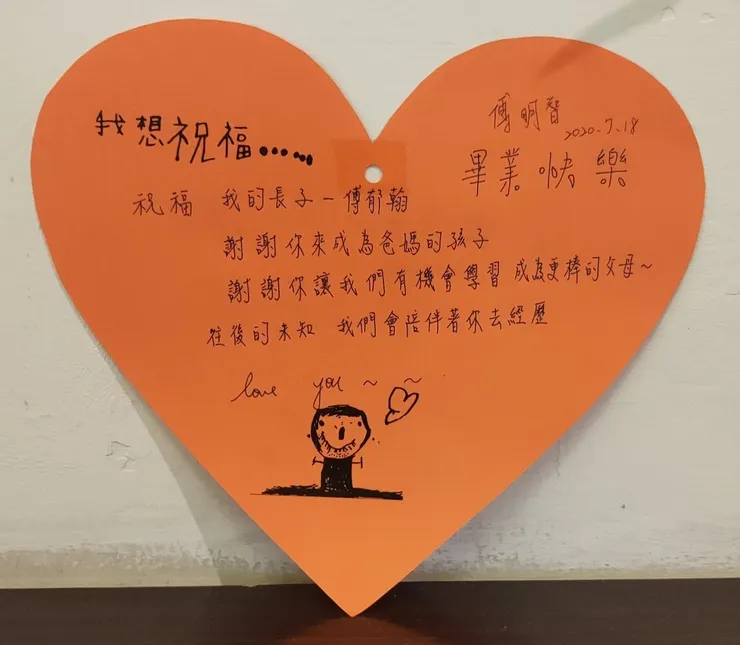 我想祝福......
傅明智
2020.7.18
畢業快樂
祝福 我的長子-傅郁翰
謝謝你來成為爸媽的孩子
謝謝你讓我們有機會學習 成為更棒的父母~
往後的未知 我們會陪伴著你去經歷
love you ~ ~